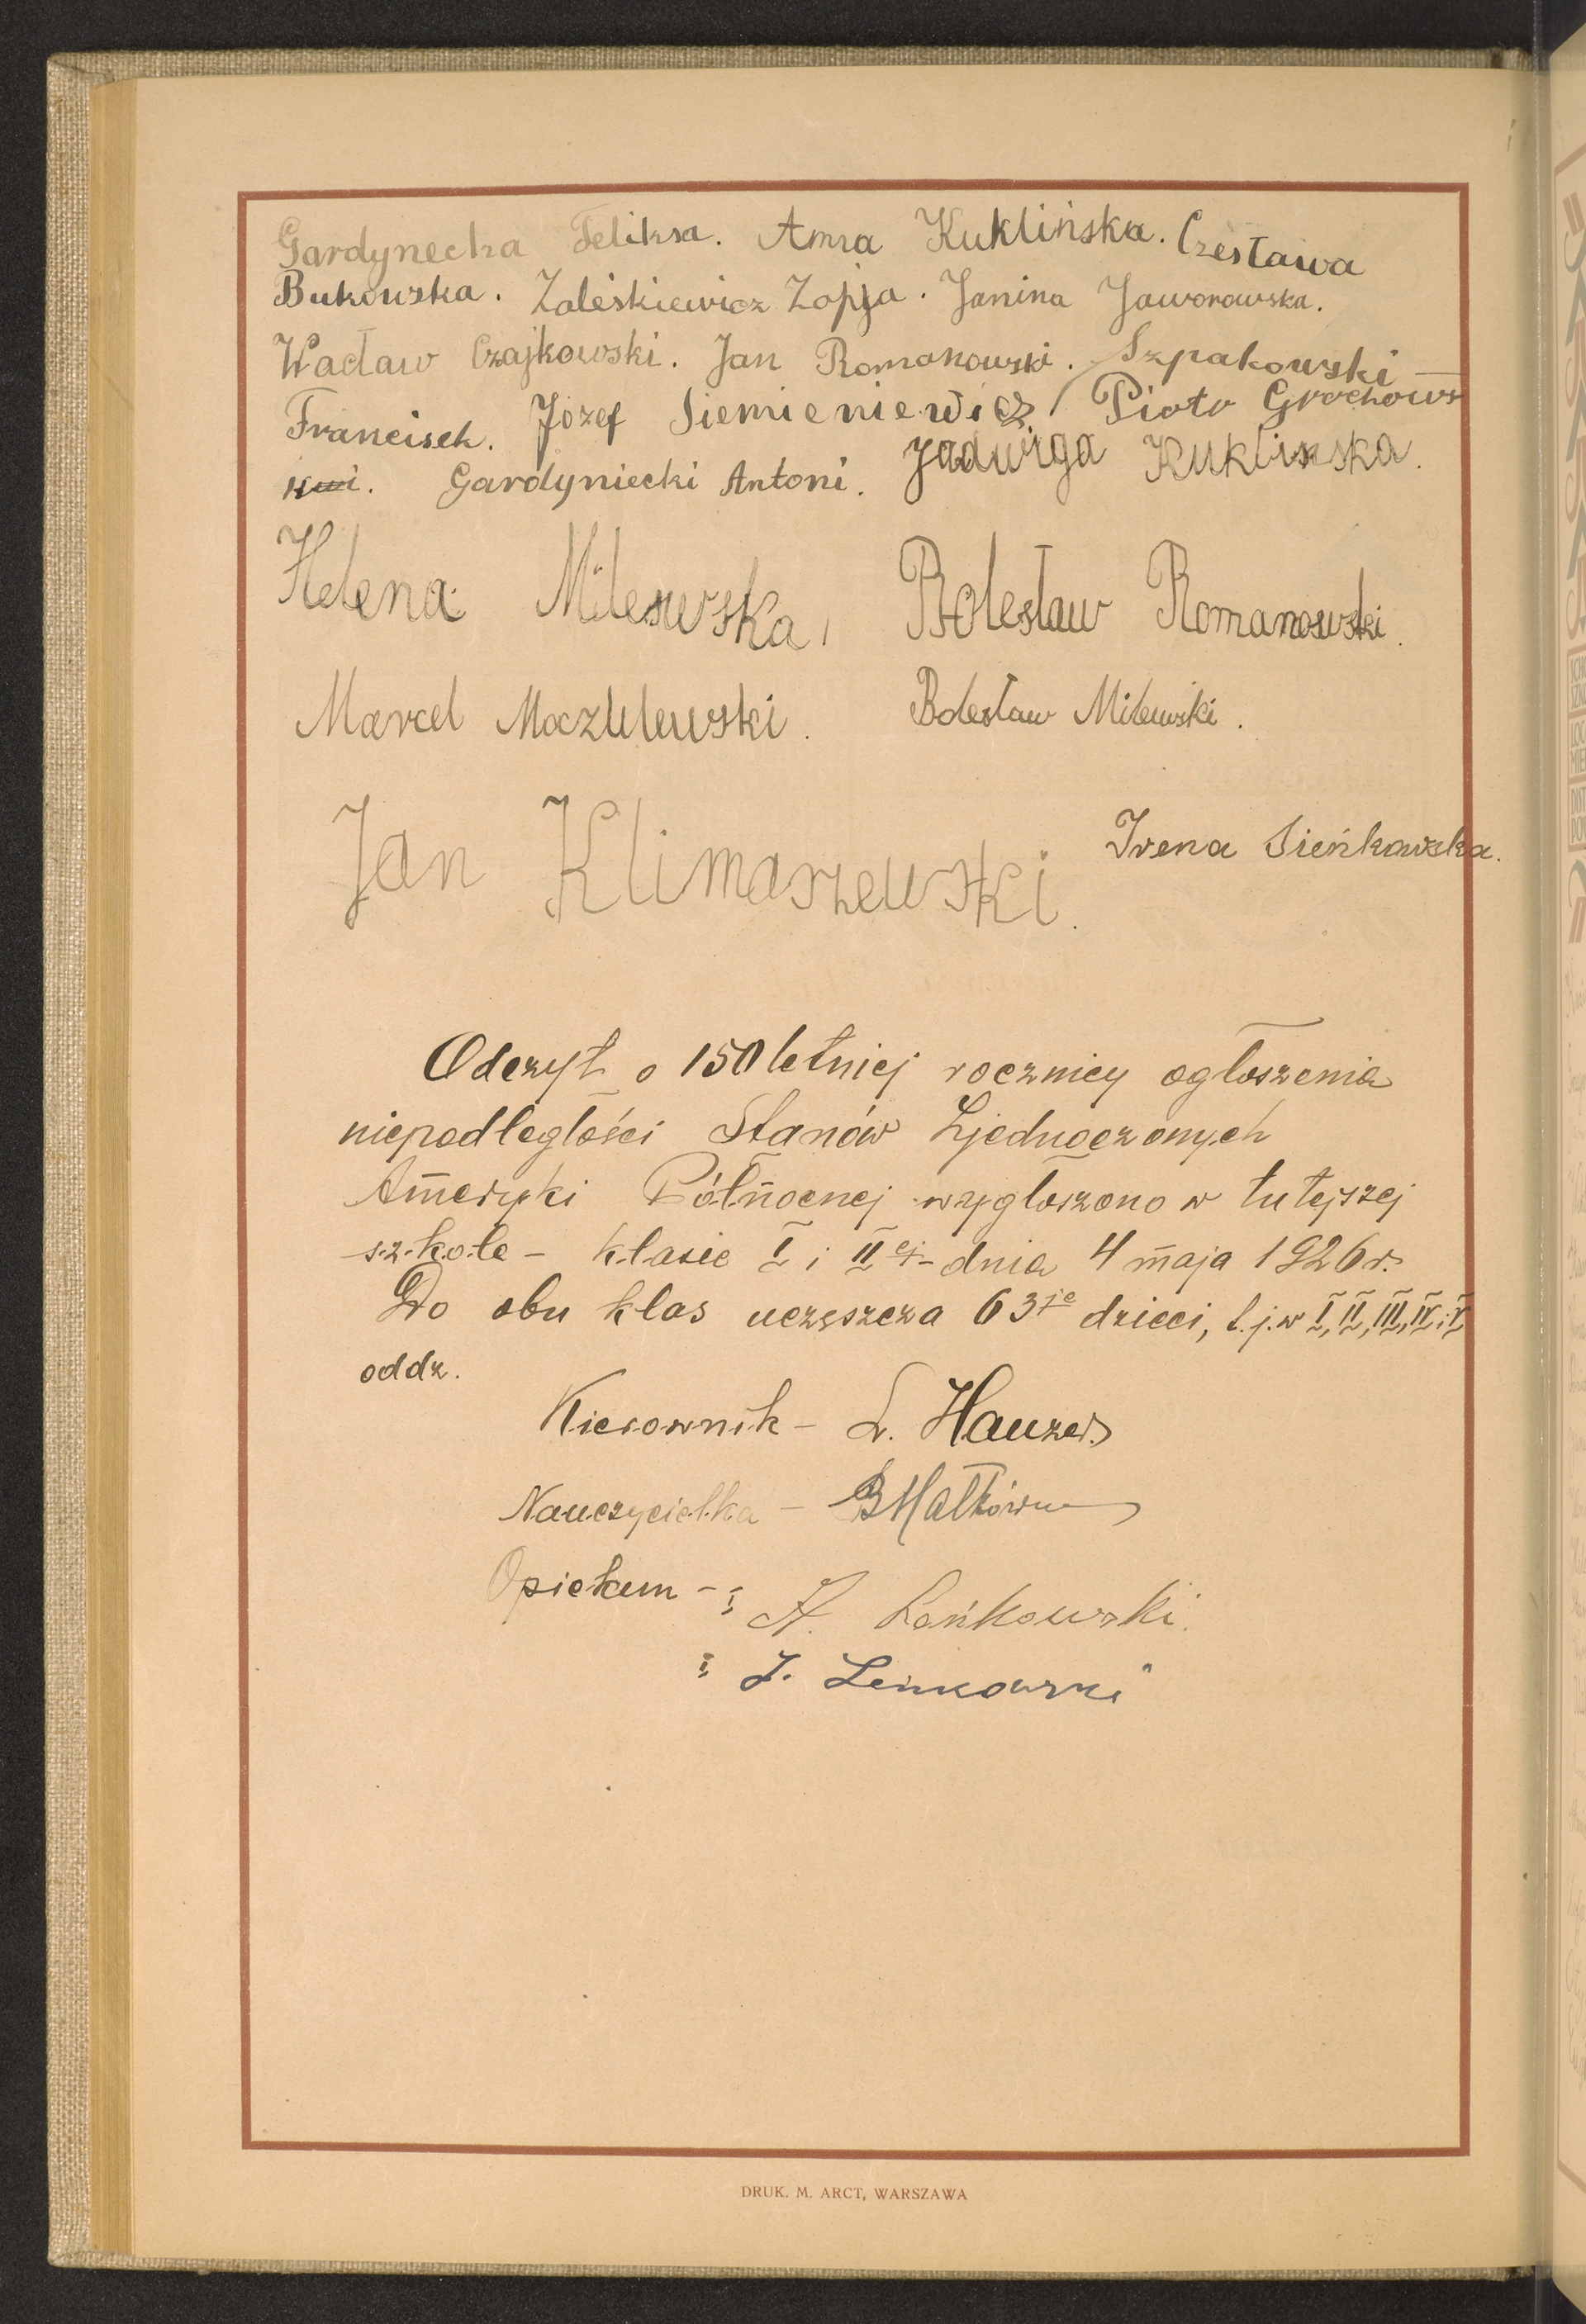 Gardynecka Feliksa. Anna Kuklińska. Czesława
Bukowska. Zaleskiewicz Zofja. Janina Jaworowska.
Wacław Czajkowski. Jan Romanowski. Szpakowski
Francisek. Józef Siemieniewicz. Piotr Grochows
ki. Gardyniecki Antoni. Jadwiga Kuklinska.
Helena Milewska, Bolesław Romanowski.
Marcel Moczulewski. Bolesław Milewski.
Jan Klimaszewski. Irena Sieńkowska.
Odczyt o 150 letniej rocznicy ogłoszenia
niepodległości Stanów Zjednoczonych
Ameryki Północnej wygłoszono w tutejszej
szkole – klasie I i II ej – dnia 4 maja 1926 r.
Do obu klas uczęszcza 63je dzieci, t.j. w I, II, III, IV i V
oddz.
Kierownik – L. Hauzer
Nauczycielka – B Małkówna
Opiekun – : A. Leńkowski.
: J. Lenkowski
DRUK. M. ARCT, WARSZAWA